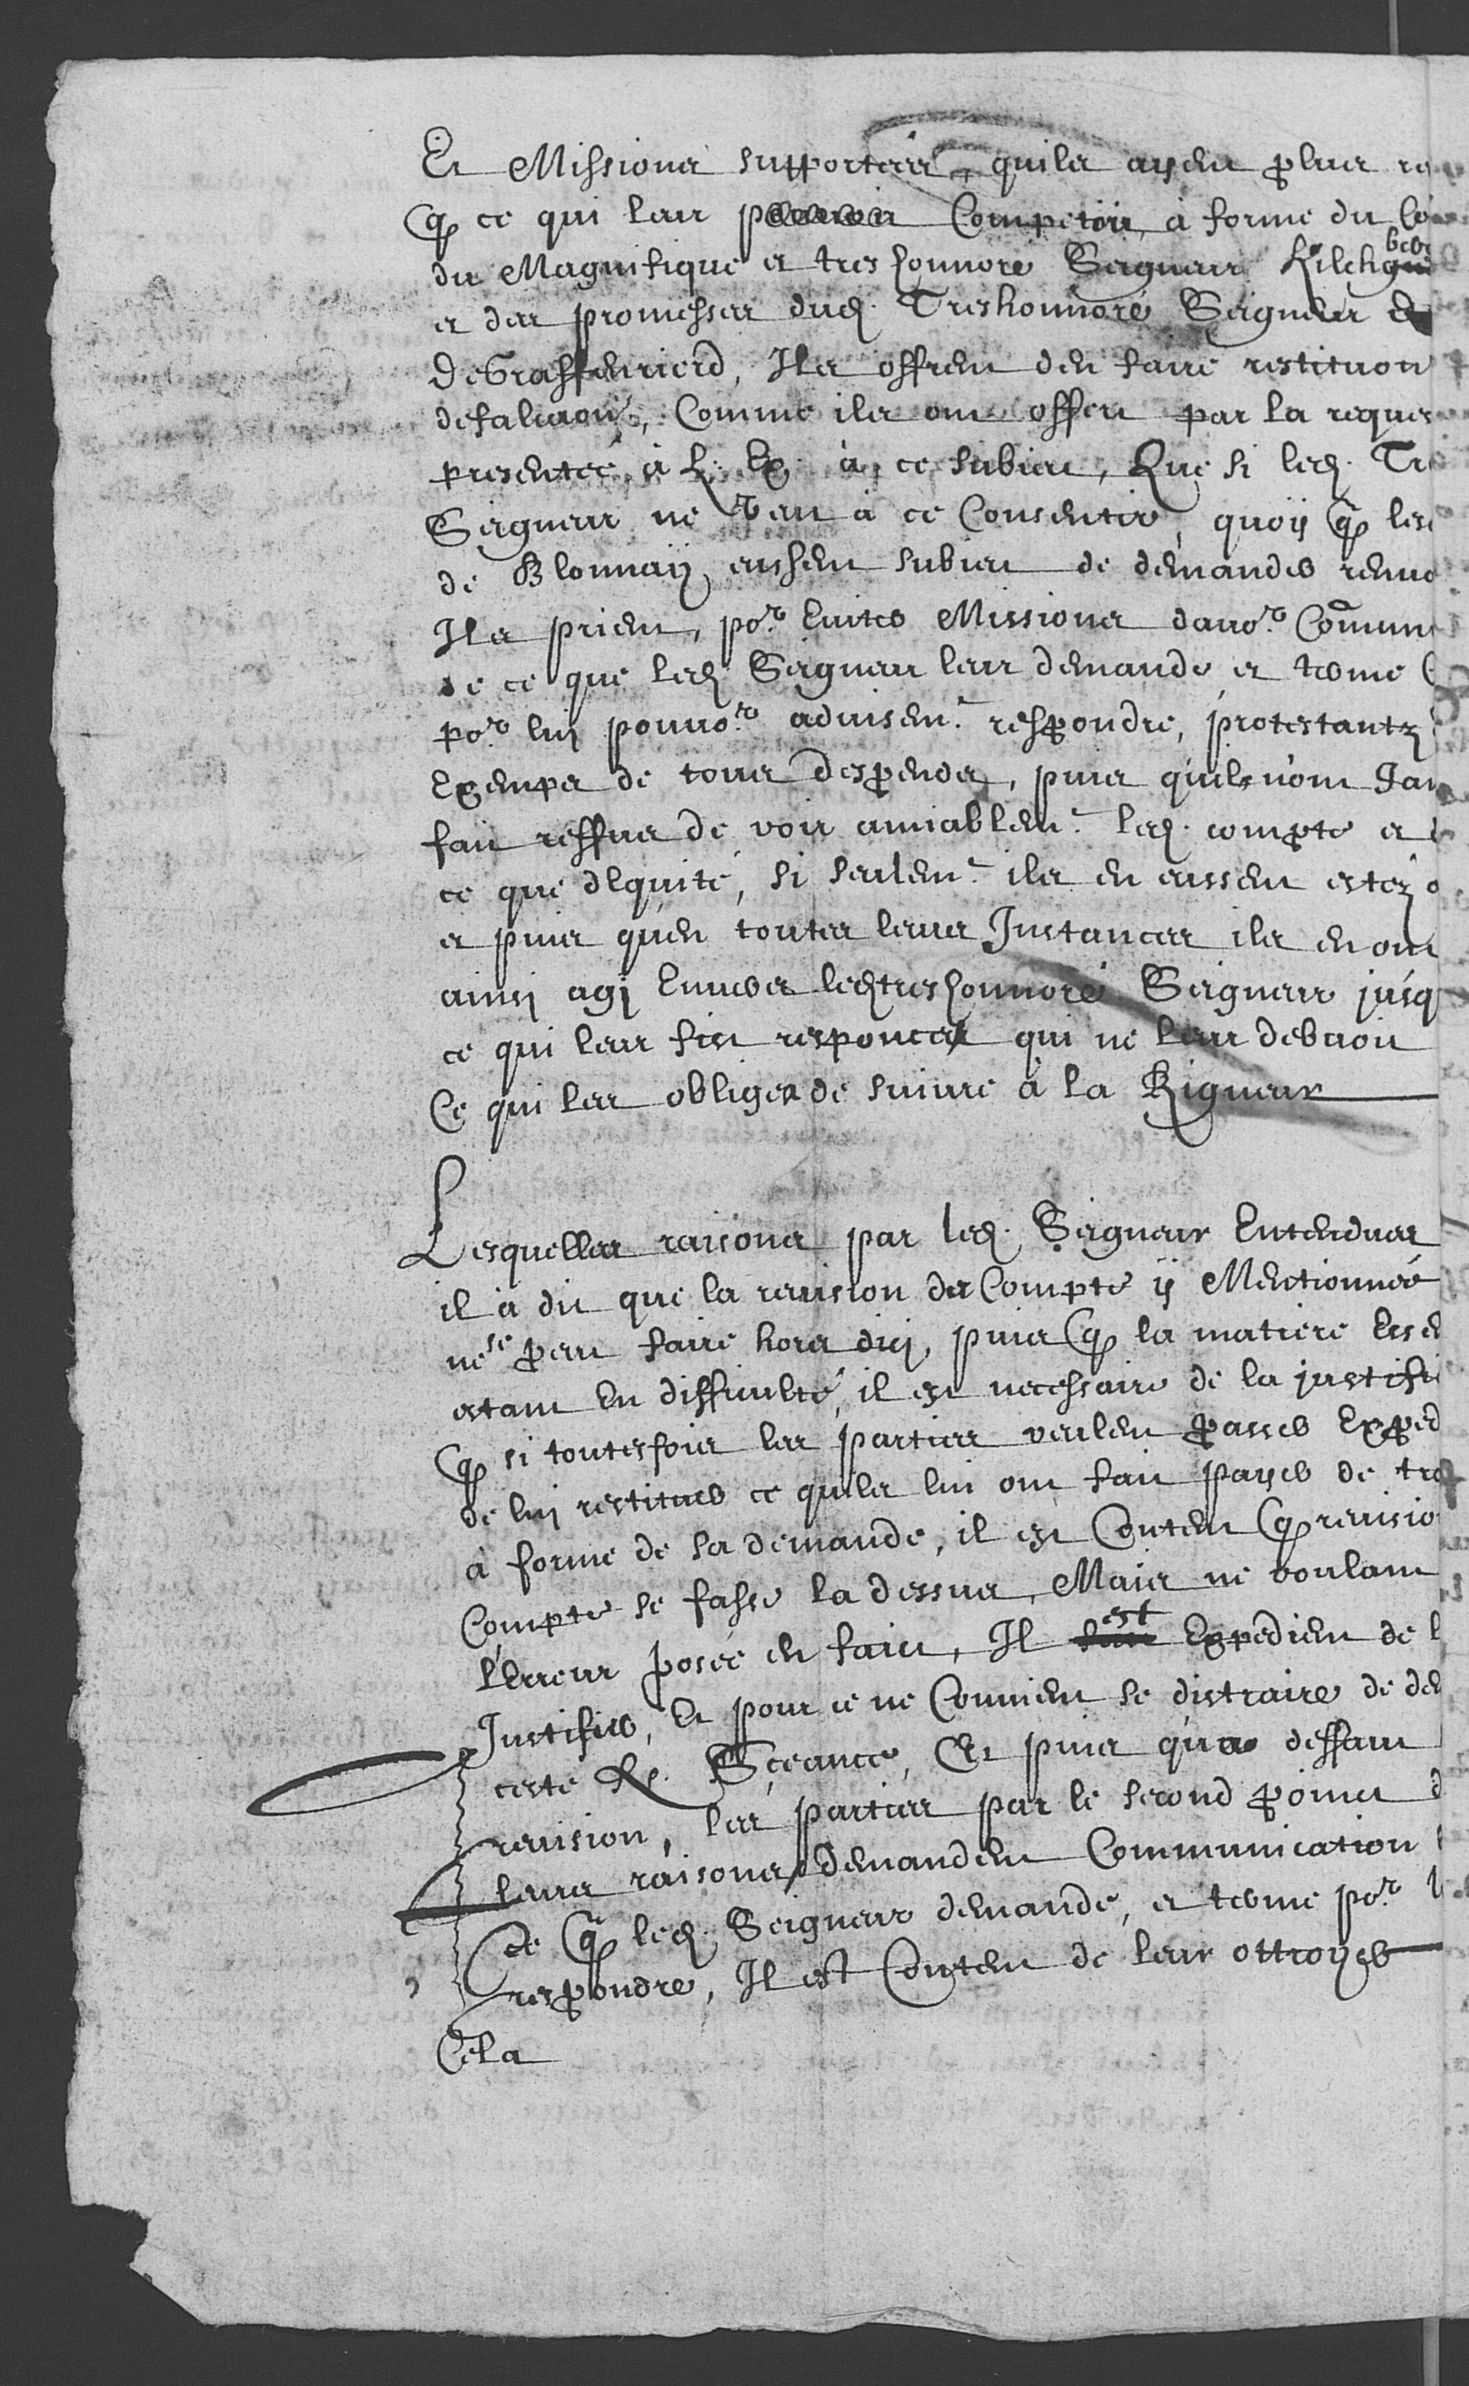 Et Missions supporter, quils ayent plus re
q̃ ce qui leur Competoit, à forme du Co
du Magnifique et tres honnoré Seigneur Kilchber
et des promesses dud. Treshonnoré Seigneur
De Graffenrierd, Ils offrent den faire restituon
defalcaon, Comme ils ont offert par la reques
presentée à L. Ex. à ce subiect, Que si led. Tr
Seigneur ne veut à ce Consentir, quoÿ q̃ les
de Blonnaÿ eussent subiect de demander renuo
Ils prient, po.r Euiter Missions dauo.r Commun
de ce que led. Seigneur leur demande et terme
po.r luy pouuo.r aduisem.t respondre, protestantz
Exempz de tous despends, puis quils nont Jam
fait reffus de voir amiablem.t led. compte et
ce que dEquité, si seulem.t ils en eussent estez
et puis quen toutes leurs Instances ils en ont
ainsy agy Enuers led tres honnoré Seigneur jusq
ce qui leur fist responces qui ne leur debuoit
Ce qui les oblige de suiure à la Rigueur
Lesquelles raisons par led. Seigneur Entendues
il à dit que la reuision des Compte ÿ Mentionnée
ne se peut faire hors dicy, puis q̃ la matiere Esse
estant En difficulté, il est necessaire de la justifi
q̃ si toutesfois les parties veulent passer Exped
de luy restituer ce quils lui ont fait payer de trop
à forme de sa demande, il est Content q̃ reuisio
Compte se fasse la dessus, Mais ne voulant
l'Erreur posée en faict, Il est Expedient de l
Justifier, Et pour ce ne Conuient se distraire de de
ceste Sçeance, Et puis qua deffaut
reuision, les parties par le second point d
leurs raisons demandent Communication
De q̃ led. Seigneur demande, et terme po.r
respondre, Il est Content de leur ottroyer
Cela